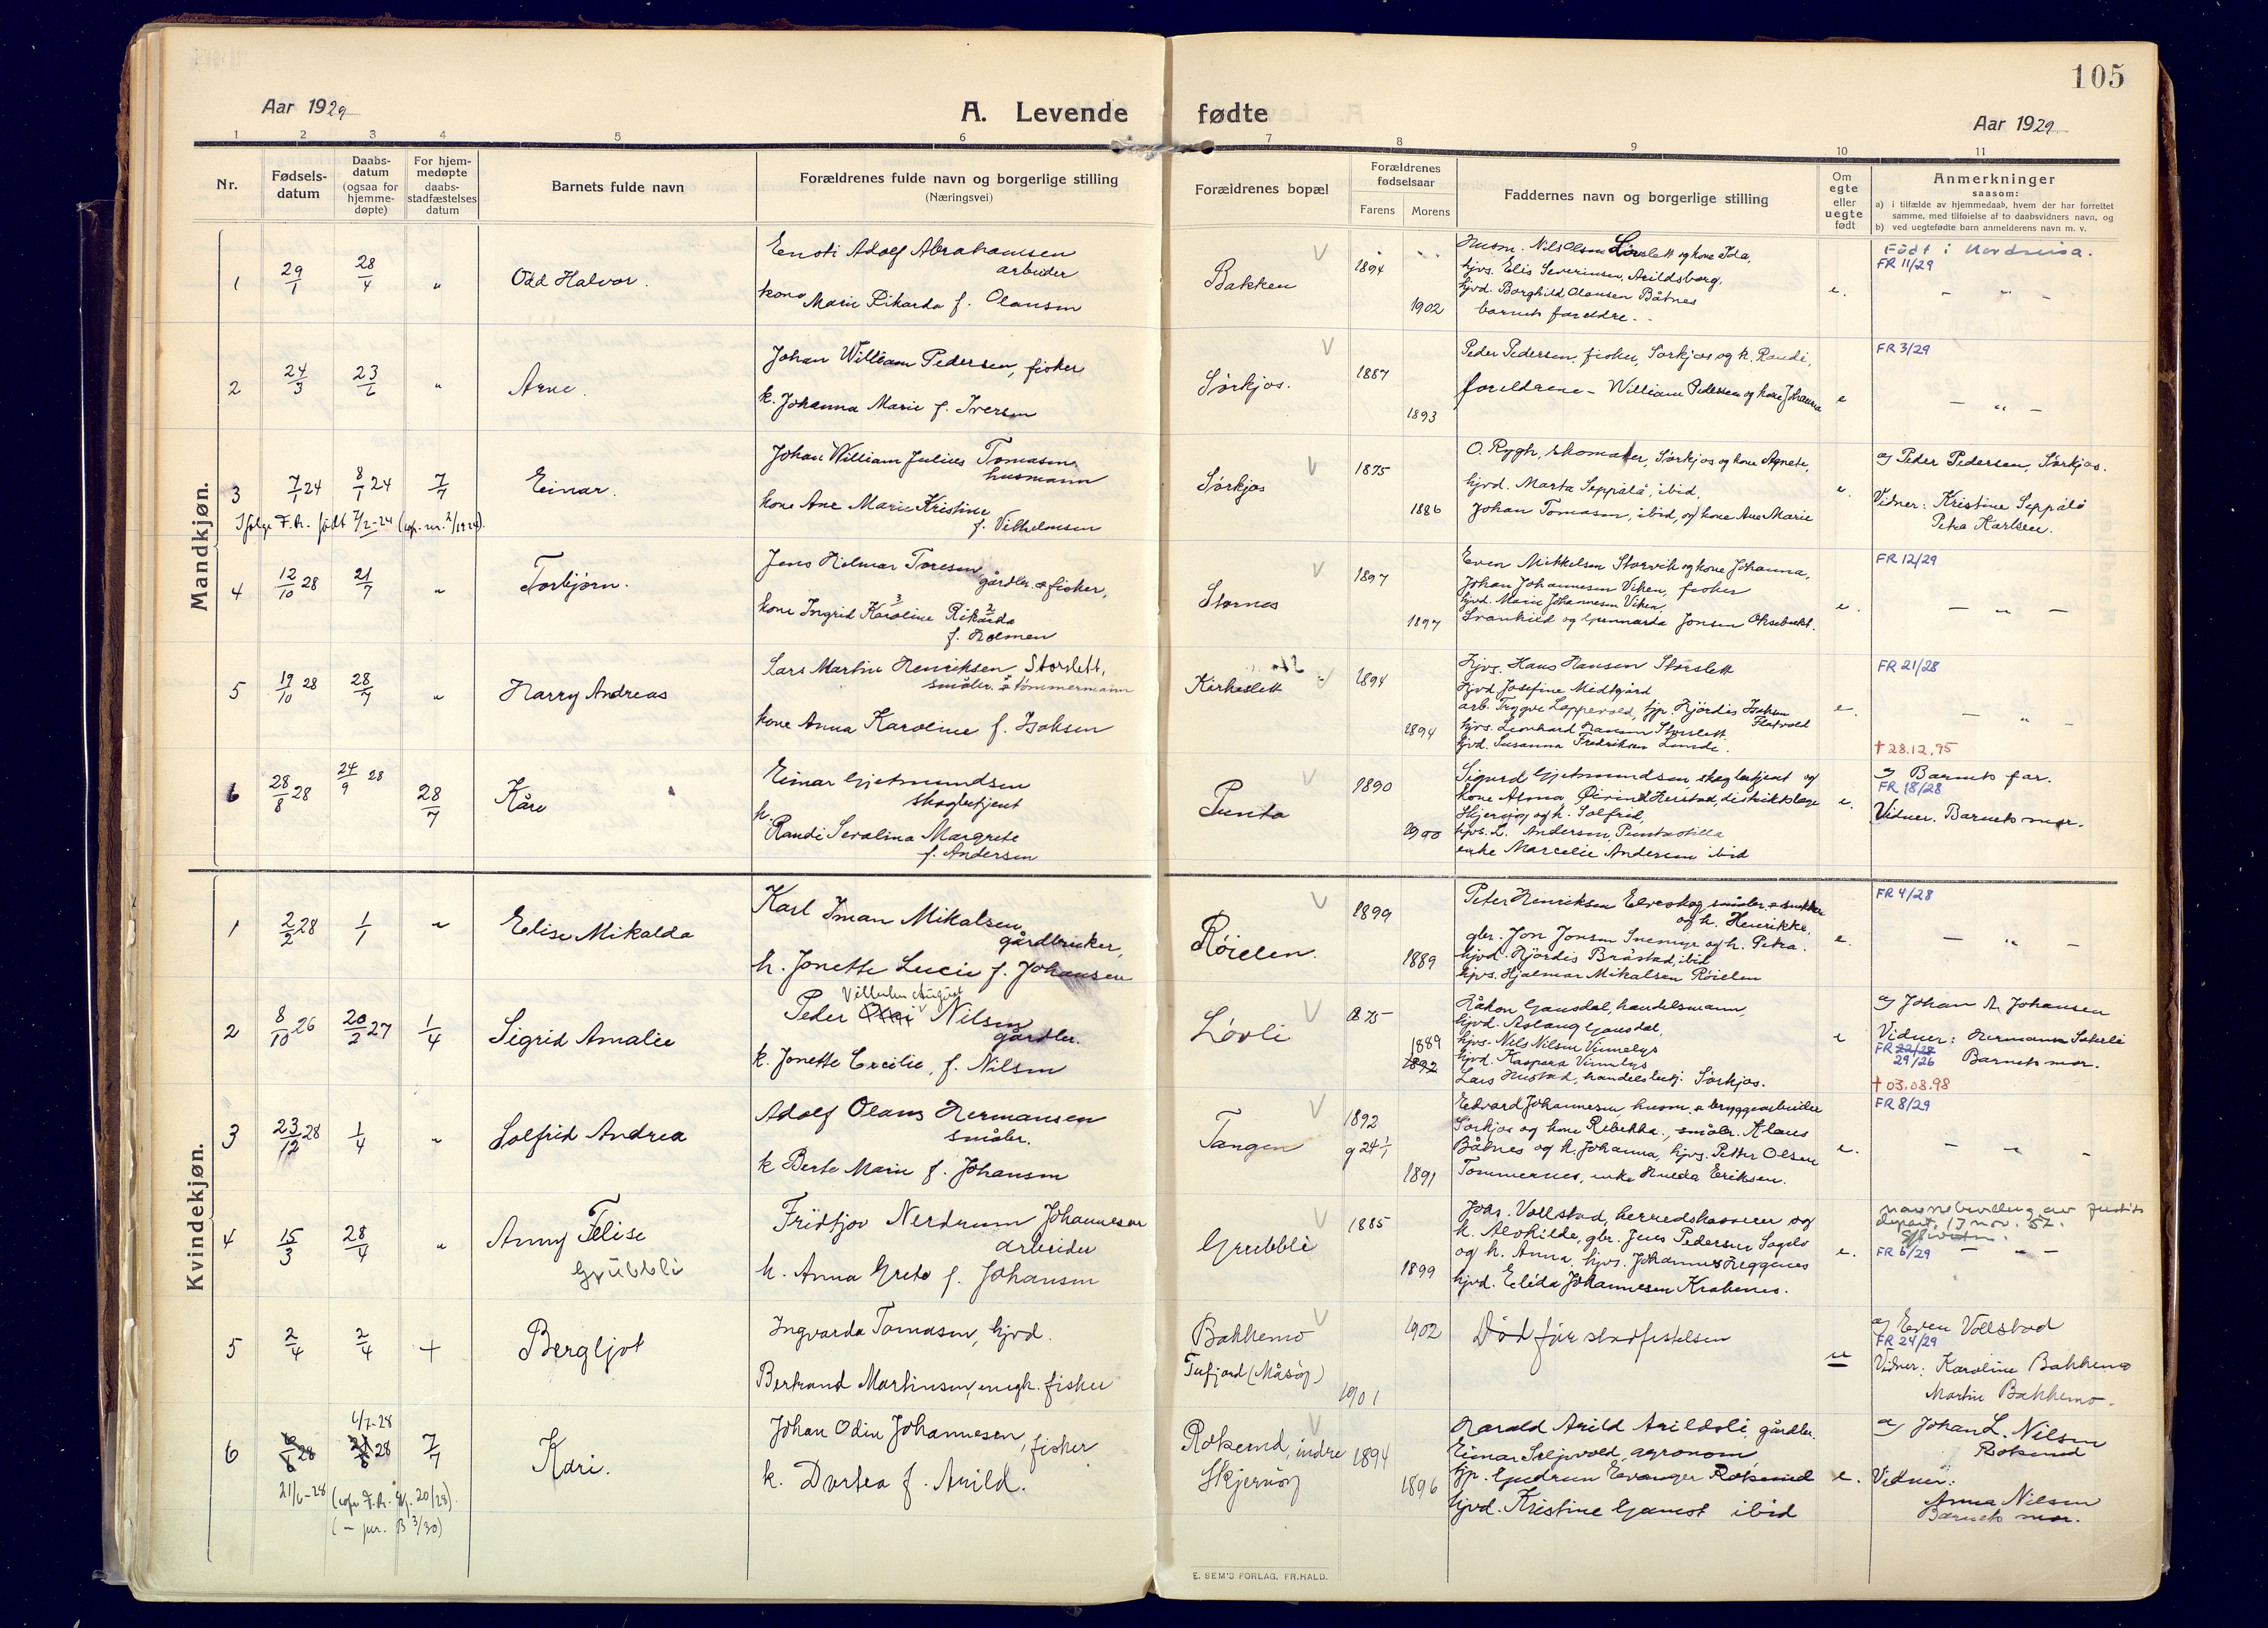 105
Aar 1929
A. Levende fødte
Aar 1929
1 2 3 4 5 6 7 8 9 10 11
Nr.
Fødsels-
datum
Daabs-
datum
(ogsaa for
hjemme-
døpte)
For hjem-
medøpte
daabs-
stadfæstelses
datum
Barnets fulde navn
Forældrenes fulde navn og borgerlige stilling
(Næringsvei)
Forældrenes bopæl
Forældrenes
fødselsaar
Farens Morens
Faddernes navn og borgerlige stilling
Om
egte
eller
uegte
født
Anmerkninger
saasom:
a) i tilfælde av hjemmedaab, hvem der har forrettet
samme, med tilføielse af to daabsvidners navn, og
b) ved uegtefødte barn anmelderens navn m. v.
Mandkjøn.
1
29/1
28/4
"
Odd Halvor.
Ensti Adolf Abrahamsen
arbeider
kone Marie Rikarda f. Olausen
Bakken
1894
1902
Husm. Nils Olsen Lørslett og kone Ida,
hjvs. Elis Severinsen, Arildsborg,
hjvd. Borghild Olausen Båtnes
barnets foreldre.
e.
Født i Nordreisa.
FR 11/29
- " -
2
24/3
23/6
"
Arne.
Johan William Pedersen, fisker
k. Johanna Marie f. Iversen
Sørkjos.
1887
1893
Peder Pedersen, fisker, Sørkjos og k. Randi,
foreldrene - William Pedersen og kone Johanna
e
FR 3/29
- " -
3
7/1 24
8/1 24
7/7
Einar.
Ifølge F.R. født 7/2-24
Johan William Julius Tomasen
husmann
kone Ane Marie Kristine
f. Vilhelmsen
Sørkjos
1875
1886
O. Rygh, skomaker, Sørkjos og kone Agnete,
hjvd. Marta Seppälä, ibid,
Johan Tomasen, ibid, og kone Ane Marie
e.
af Peder Pedersen, Sørkjos.
Vidner: Kristine Seppälä
Petra Karlsen.
4
12/10 28
21/7
"
Torbjørn.
Jens Hilmar Toresen
gårdbr. & fisker,
kone Ingrid Karoline Rikarda
f. Holmen
Stornes
1897
1897
Even Mikkelsen Storvik og kone Johanna,
Johan Johannesen Viken, fisker
hjvd. Marie Johannesen Viken,
Svanhild og Gunnarda Jensen Oksebukt.
e.
FR 12/29
- " -
5
19/10 28
28/7
"
Harry Andreas
Lars Martin Henriksen, Storslett,
småbr. & tømmermann
kone Anna Karoline f. Isaksen
Kirkeslett
1894
1894
hjvs. Hans Hansen Storslett
hjvd Josefine Midtgård
arb. Trygve Leppevold, hjp. Hjördis Isaksen
Flatvold
hjvs. Leonhard Hansen Storslett
hjvd. Susanna Fredriksen Lunde.
e.
FR 21/28
- " -
6
28/8 28
24/9 28
28/7
Kåre
Einar Gjetmundsen
skogbetjent
h. Randi Seralina Margrete
f. Andersen
Punta
1890
1900
Sigurd Gjetmundsen, skogbetjent og
kone Alma, Øivind Herstad, distriktslæge
Skjervøy og h. Solfrid,
hjvs. L. Andersen, Puntastilla
enke Marcelie Andersen ibid
e.
† 28.12.95
af Barnets far.
FR 18/28
Vidner. Barnets mor.
Kvindekjøn.
1
2/2 28
1/1
"
Elise Mikalda
Karl Iman Mikalsen
gårdbruker,
h. Jonette Lucie f. Johansen
Røielen.
1899
1889
Peter Henriksen Elveskog småbr. & snekker
og h. Henrikke,
gbr. Jon Jonsen Snemyr og h. Petra.
hjvd. Hjördis Bråstad, ibid
hjvs. Hjalmar Mikalsen Røielen
e.
FR 4/28
- " -
2
8/10 26
20/2 27
1/4
Sigrid Amalie
Villiam August
Peder Nilsen
gårdbr.
k. Jonette Cecilie, f. Nilsen
Løvli
1875
1889
1892
Håkon Gausdal, handelsmann,
hjvd. Aslaug Gausdal,
hjvs. Nils Nilsen Vinnelys
hjvd. Kaspara Vinnelys
Lars Hustad, handelsbetj. Sørkjos.
e
af Johan A. Johansen
Vidner: Hermann Sakeli
FR 22/28
29/26 Barnets mor.
3
23/12 28
1/4
"
Solfrid Andrea
Adolf Olaus Hermansen
småbr.
k Berte Marie f. Johansen
Tangen
1892
g 24 1/1
1891
Edvard Johannesen, husm. & bryggearbeider
Sørkjos og kone Rebekka., småbr. Klaus
Båtnes og k. Johanna, hjvs. Petter Olsen
Tømmernes, enke Hulda Eriksen.
e.
† 03.08.98
FR 8/29
- " -
4
15/3
28/4
"
Anny Felise
Grübbli
Fridtjov Nerdrum Johannesen
arbeider
h. Anna Grete f. Johansen
Grübbli
1885
1899
Johs. Vollstad, herredskasserer og
k. Alvhilde, gbr. Jens Pedersen Sagelv
og h. Anna, hjvs. Johannes Heggenes
hjvd. Elida Johannesen Krakenes.
e.
navnebevilling av justits
depart. 17 nov. 52.
FR 6/29 - " -
5
2/4
2/4
+
Bergljot
Ingvarda Tomasen, hjvd.
Bertrand Martinsen, ungk. fisker
Bakkemo
Tufjord (Måsøy)
1902
1901
Død før stadfestelsen
u
af Even Vollstad
FR 24/29
Vidner: Karoline Bakkemo
Martin Bakkemo.
6
6/6 28
6/7-28
28
7/7
21/6-28
Kari.
Johan Odin Johannesen, fisker
k. Dortea f. Arild.
Rotsund, indre
Skjervøy
1894
1896
Harald Arild Arildsli, gårdbr.
Einar Seljevold, agronom,
hjp. Gudrun Evanger Rotsund
hjvd. Kristine Gamst ibid
e.
a, Johan L. Nilsen
Rotsund
Vidner:
Anna Nilsen
Barnets mor.
E. SEM'S FORLAG, FR.HALD.